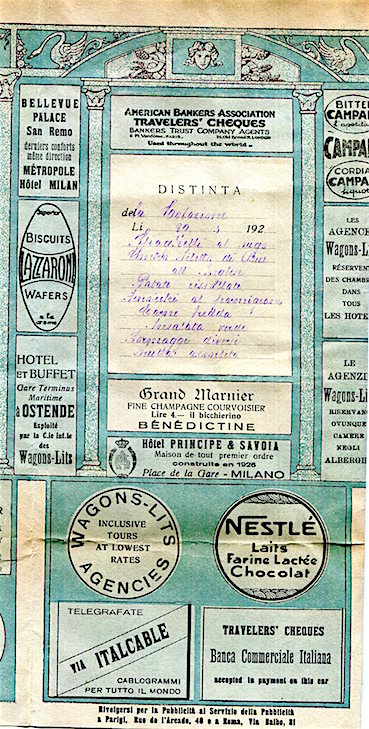 BELLEVUE
PALACE
San Remo
derniers conforts
même direction
MÉTROPOLE
Hôtel MILAN
Superior
BISCUITS
LAZZARONI
WAFERS
a la
crema
HOTEL
ET BUFFET
Gare Terminus
Maritime
à OSTENDE
Exploité
par la C.ie int.le
des
Wagons-Lits
AMERICAN BANKERS ASSOCIATION
TRAVELERS' CHEQUES
BANKERS TRUST COMPANY AGENTS
Used throughout the world.
DISTINTA
della Colazione
Li 29 192
al sugo
di Bue
all
Patate
al parmigiano
Carne fredda
Insalata verde
Formaggi diversi
Frutta assortita
Grand Marnier
FINE CHAMPAGNE COURVOISIER
Lire 4.— il bicchierino
BÉNÉDICTINE
Hôtel PRINCIPE & SAVOIA
Maison de tout premier ordre
construite en 1926
Place de la Gare - MILANO
BITTER
CAMPA
l'aperitivo
CAMPA
CORDIA
CAMPA
liquor
LES
AGENCE
Wagons-L
RÉSERVEN
DES CHAMBR
DANS
TOUS
LES HOTE
LE
AGENZI
Wagons-Li
RISERVANO
OVUNQUE
CAMERE
NEGLI
ALBERGHI
WAGONS-LITS
INCLUSIVE
TOURS
AT LOWEST
RATES
AGENCIES
NESTLÉ
Laits
Farine Lactée
Chocolat
TELEGRAFATE
VIA ITALCABLE
CABLOGRAMMI
PER TUTTO IL MONDO
TRAVELERS' CHEQUES
Banca Commerciale Italiana
accepted in payment on this car
Rivolgersi per la Pubblicità al Servizio della Pubblicità
a Parigi, Rue de l'Arcade, 40 e a Roma, Via Balbo, 31